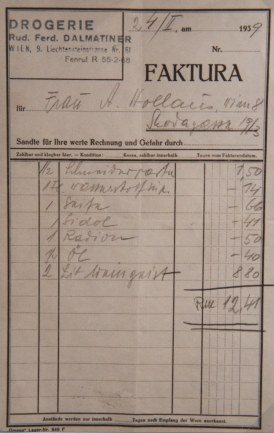 DROGERIE
Rud. Ferd. DALMATINER
WIEN, 9. Liechtensteinstrasse Nr.
Fernruf R 55-2-68
24/II. am 1939
Nr.
FAKTURA
für Frau A. Hollaus, Wien 8
Skodagasse 19/3
Sandte für Ihre werte Rechnung und Gefahr durch
Zahlbar und klagbar hier. — Kondition: Kassa, zahlbar innerhalb Tagen vom Fakturendatum.
1,50
12 Wasserstoff - 14
1 Seife - 66
1 Sidol - 41
Radion - 50
Öl - 40
2 Lit 8 80
RM 12,41
Anstände werden nur innerhalb Tagen nach Empfang der Ware anerkannt.